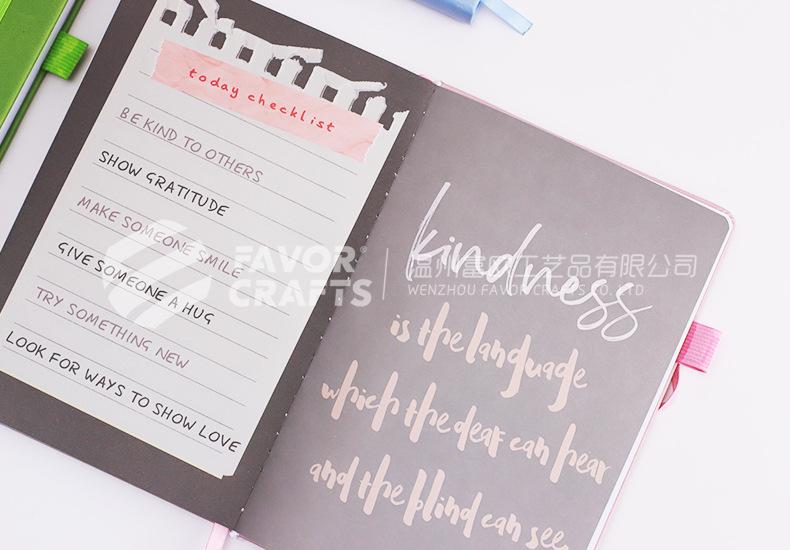 today checklist
BE KIND TO OTHERS
SHOW GRATITUDE
MAKE SOMEONE SMILE
GIVE SOMEONE A HUG
TRY SOMETHING NEW
LOOK FOR WAYS TO SHOW LOVE
kindness
is the language
which the deaf can hear
and the blind can see
FAVOR®
CRAFTS
温州富朗工艺品有限公司
WENZHOU FAVOR CRAFTS CO. LTD